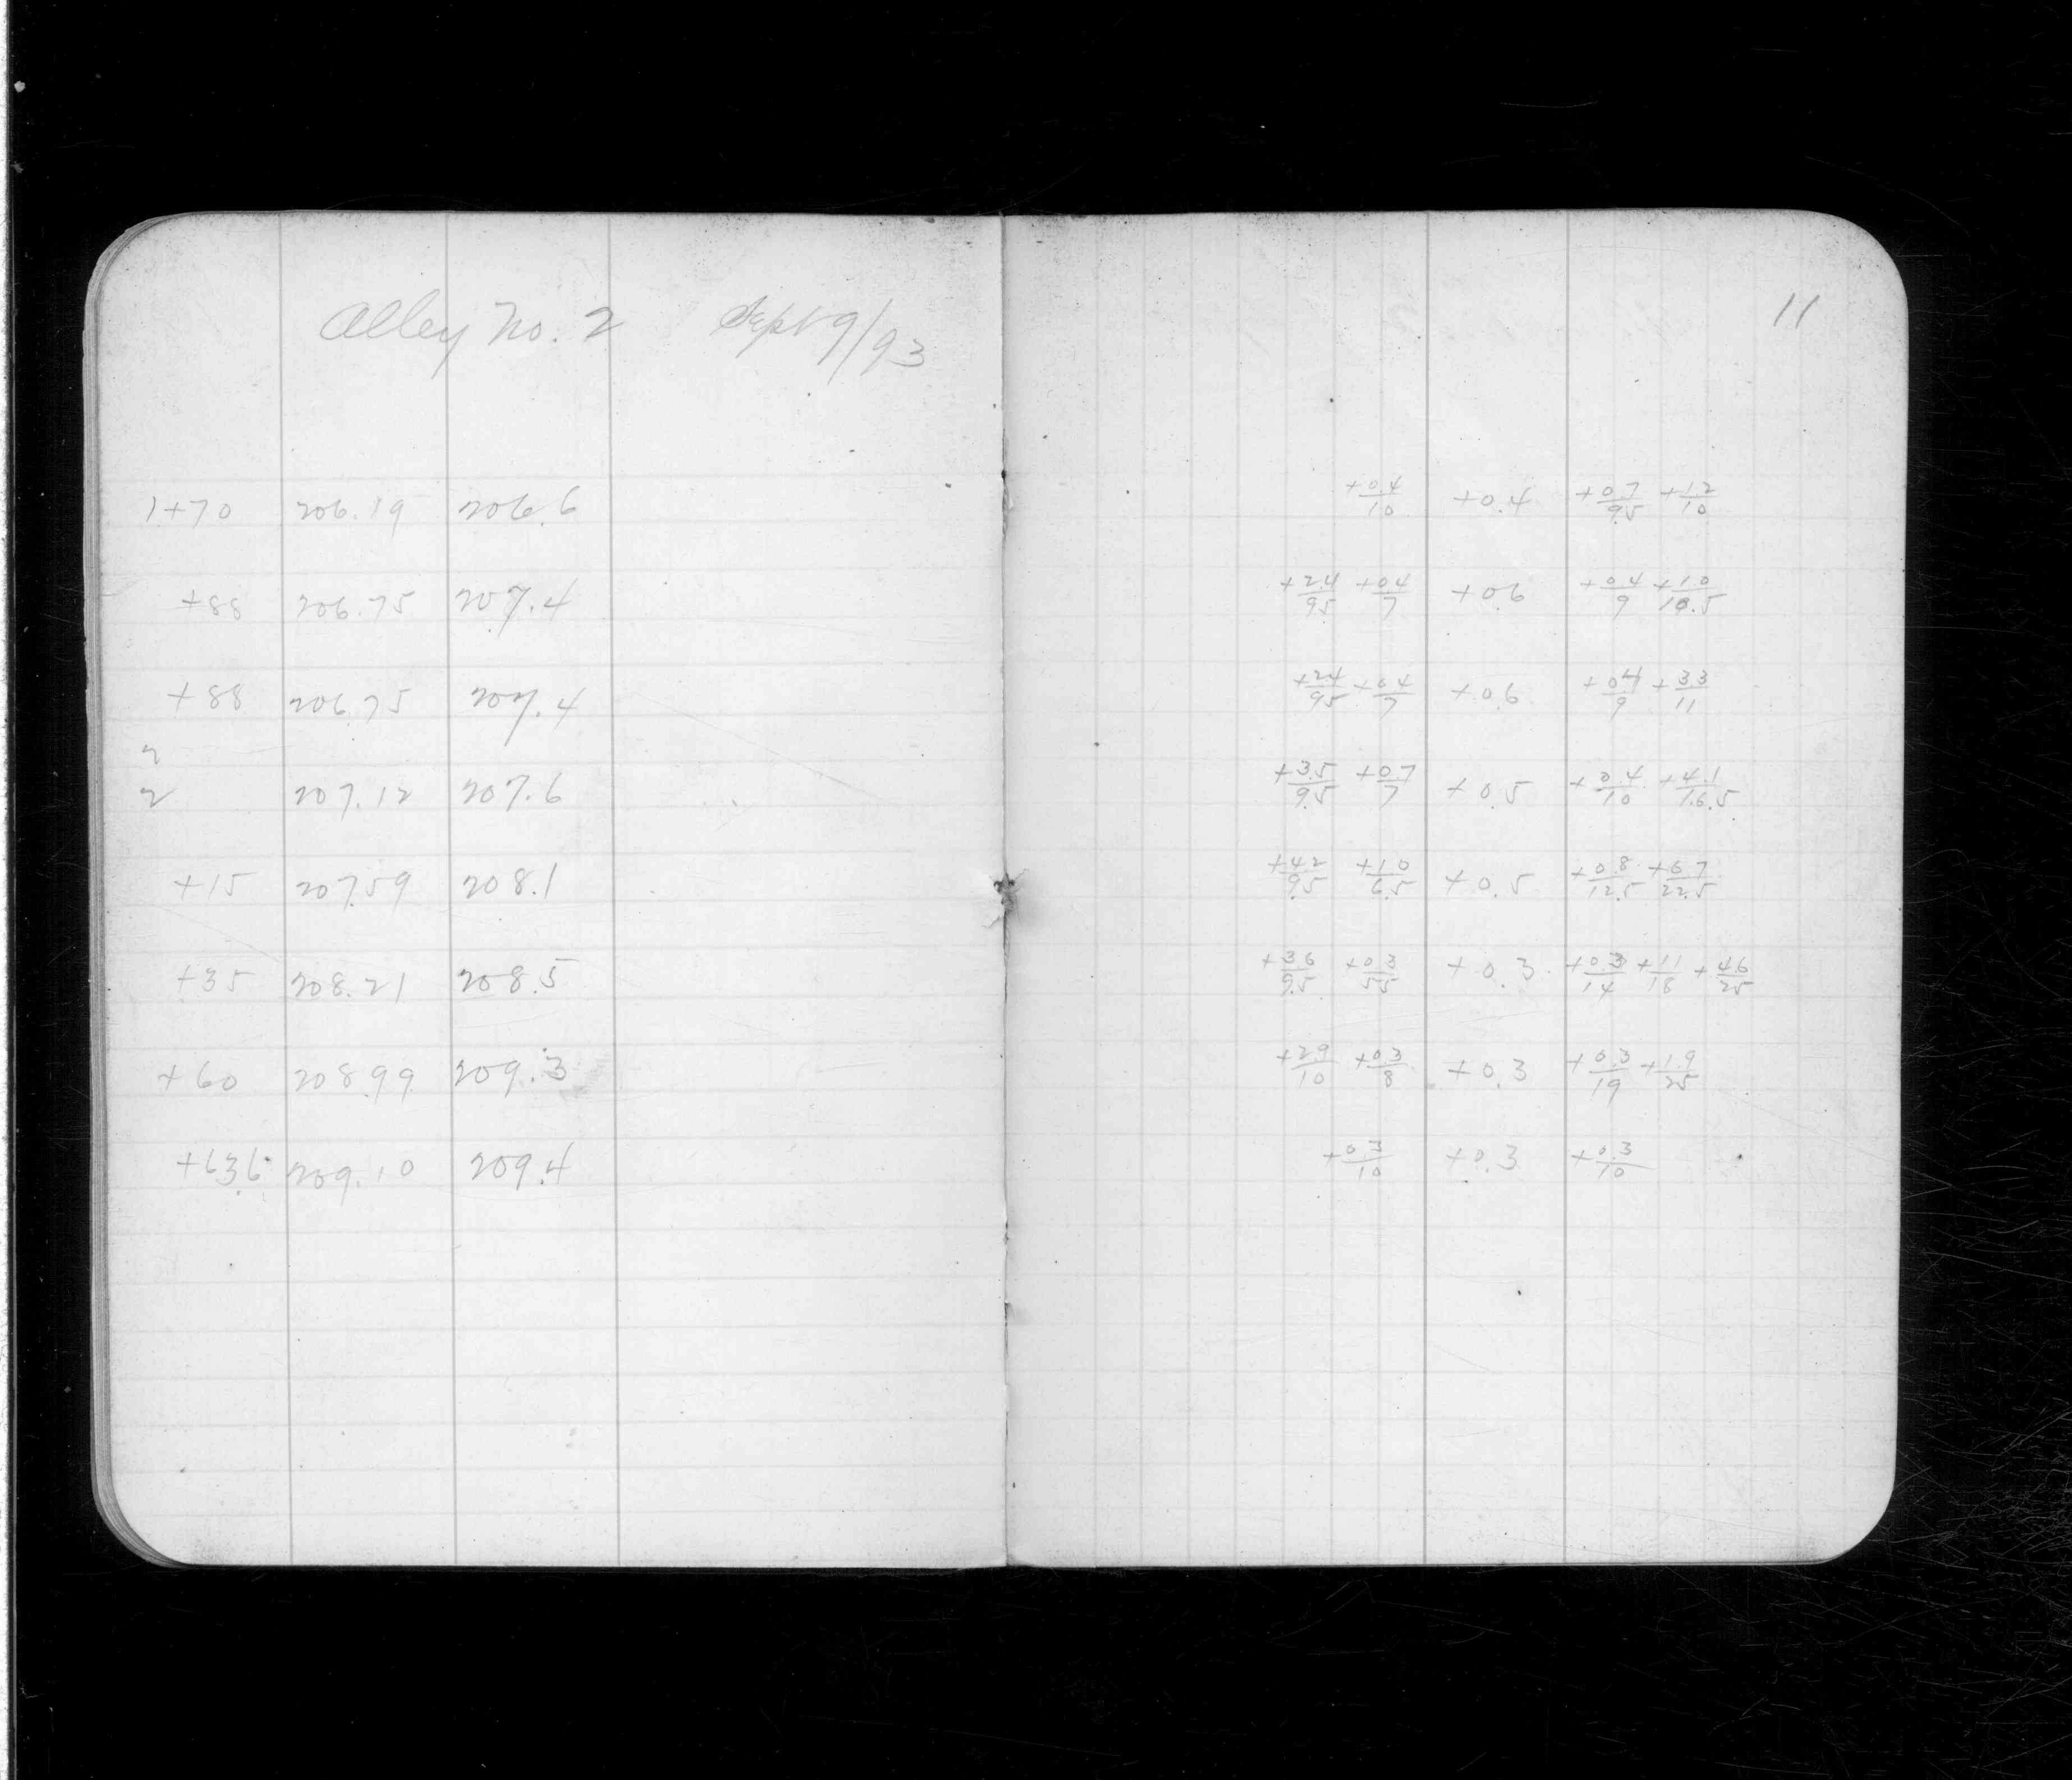 Alley No. 2 Sept 9/93
11
1+70 206.19 206.6 +0.4/10 +0.4 +0.7/9.5 +1.2/10
+88 206.75 207.4 +2.4/9.5 +0.4/7 +0.6 +0.4/9 +1.0/10.5
+88 206.75 207.4 +2.4/9.5 +0.4/7 +0.6 +0.4/9 +3.3/11
2
2 207.12 207.6 +3.5/9.5 +0.7/7 +0.5 +0.4/10 +4.1/16.5
+15 207.59 208.1 +4.2/9.5 +1.0/6.5 +0.5 +0.8/12.5 +6.7/22.5
+35 208.21 208.5 +3.6/9.5 +0.3/5.5 +0.3 +0.3/14 +1.1/18 +4.6/25
+60 208.99 209.3 +2.9/10 +0.3/8 +0.3 +0.3/19 +1.9/25
+63.6 209.10 209.4 +0.3/10 +0.3 +0.3/10